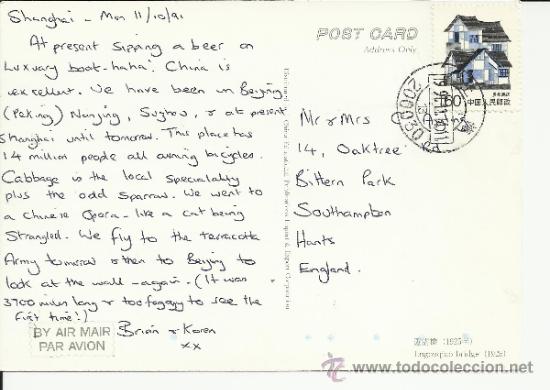 Shanghai - Mon 11/10/91
At present sipping a beer on
Luxuary boat-haha, China is
excellent. We have been in Beijing
(Peking) Nanjing, Suzhou, & at present
Shanghai until tomorrow. This place has
14 million people all owning bicycles.
Cabbage is the local speciality
plus the odd sparrow. We went to
a Chinese Opera - like a cat being
Strangled. We fly to the terracotta
Army tomorrow & then to Beijing to
look at the wall - again. (It was
3700 miles long & too foggy to see the
First time!)
Brian & Karen
xx
BY AIR MAIR
PAR AVION
POST CARD
Address Only
Mr & Mrs
14, Oaktree
Bittern Park
Southampton
Hants
England.
60
中国人民邮政
200080
(1925年)
Bridge (1925)
todocoleccion.net